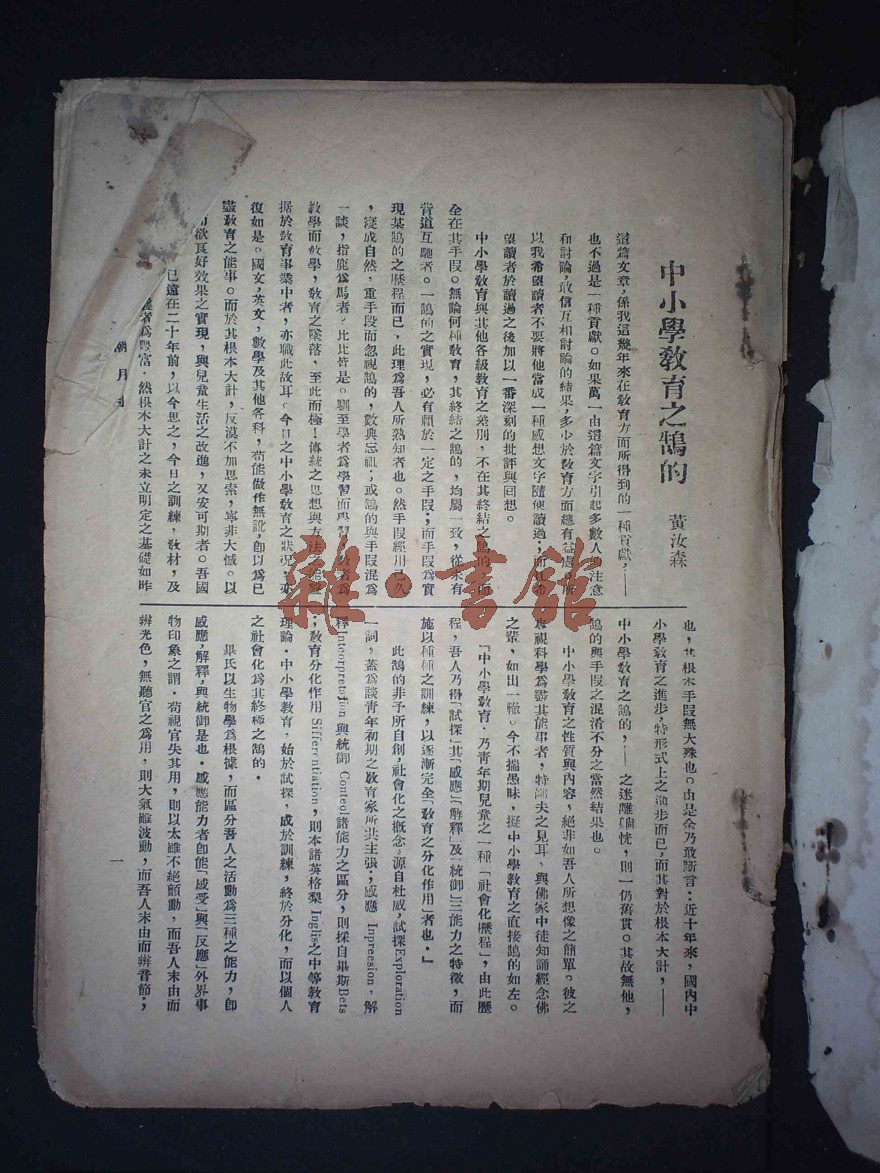 中小學教育之鵠的
黃汝森
這篇文章，係我這幾年來在教育方面所得到的一種貢獻，——
也不過是一種貢獻。如果萬一由這篇文字引起多數人的注意
和討論，敢信互相討論的結果，多少於教育方面總有益處。所
以我希望讀者不要將他當成一種感想文字隨便讀過；而且希
望讀者於讀過之後加以一番深刻的批評與回想。
中小學教育與其他各級教育之差別，不在其終結之鵠的，而
全在其手段。無論何種教育，其終結之鵠的，均屬一致，從未有
背道互馳者。一鵠的之實現，必有賴於一定之手段；而手段爲實
現某鵠的之歷程而已，此理爲吾人所熟知者也。然手段經用已久
，寖成自然，重手段而忽視鵠的，數典忘祖；或鵠的與手段混爲
一談，指鹿爲馬者，比比皆是。馴至學者爲學習而學習，教者爲
教學而教學，教育之墜落，至此而極！傳統之思想與方法之能盤
据於教育事業中者，亦職此故耳。今日之中小學教育之狀況，亦
復如是。國文，英文，數學及其他各科，苟能做作無訛，卽以爲已
盡教育之能事。而於其根本大計，反漠不加思索，寧非大憾。以
而欲良好效果之實現，與兒童生活之改進，又安可期者。吾國
已遠在二十年前，以今思之，今日之訓練，教材，及
者爲豐富．然根本大計之未立明定之基礎如昨
也，其根本手段無大殊也。由是余乃敢斷言：近十年來，國內中
小學教育之進步，特形式上之進步而已，而其對於根本大計，——
中小學教育之鵠的，——之迷離惝恍，則一仍舊貫。其故無他，
鵠的與手段之混淆不分之當然結果也。
中小學教育之性質與內容，絕非如吾人所想像之簡單。彼之
專視科學爲盡其能事者，特淵夫之見耳，與佛家中徒知誦經念佛
之輩，如出一轍。今不揣愚昧，擬中小學教育之直接鵠的如左。
「中小學教育．乃青年期兒童之一種「社會化歷程」，由此歷
程，吾人乃得「試探」其「感應」「解釋」及「統御」三能力之特徵，而
施以種種之訓練，以逐漸完全「教育之分化作用」者也．」
此鵠的非予所自創，社會化之概念，源自杜威，試探Exploration
一詞，蓋爲談青年初期之教育家所共主張；感應 Inpreesion，解
釋 Inteorpretation 與統御 Conteol 諸能力之區分，則採自畢斯 Bets
；教育分化作用 Sifferentiation，則本諸英格梨 Inglis 之中等教育
理論．中小學教育，始於試探，成於訓練，終於分化，而以個人
之社會化爲其終極之鵠的．
畢氏以生物學爲根據，而區分吾人之活動爲三種之能力，卽
感應，解釋，與統御是也．感應能力者卽能「感受」與「反應」外界事
物印象之謂．苟視官失其用，則以太雖不絕顫動，而吾人末由而
辨光色，無聽官之爲用，則大氣雖波動，而吾人末由而辨音節；
一